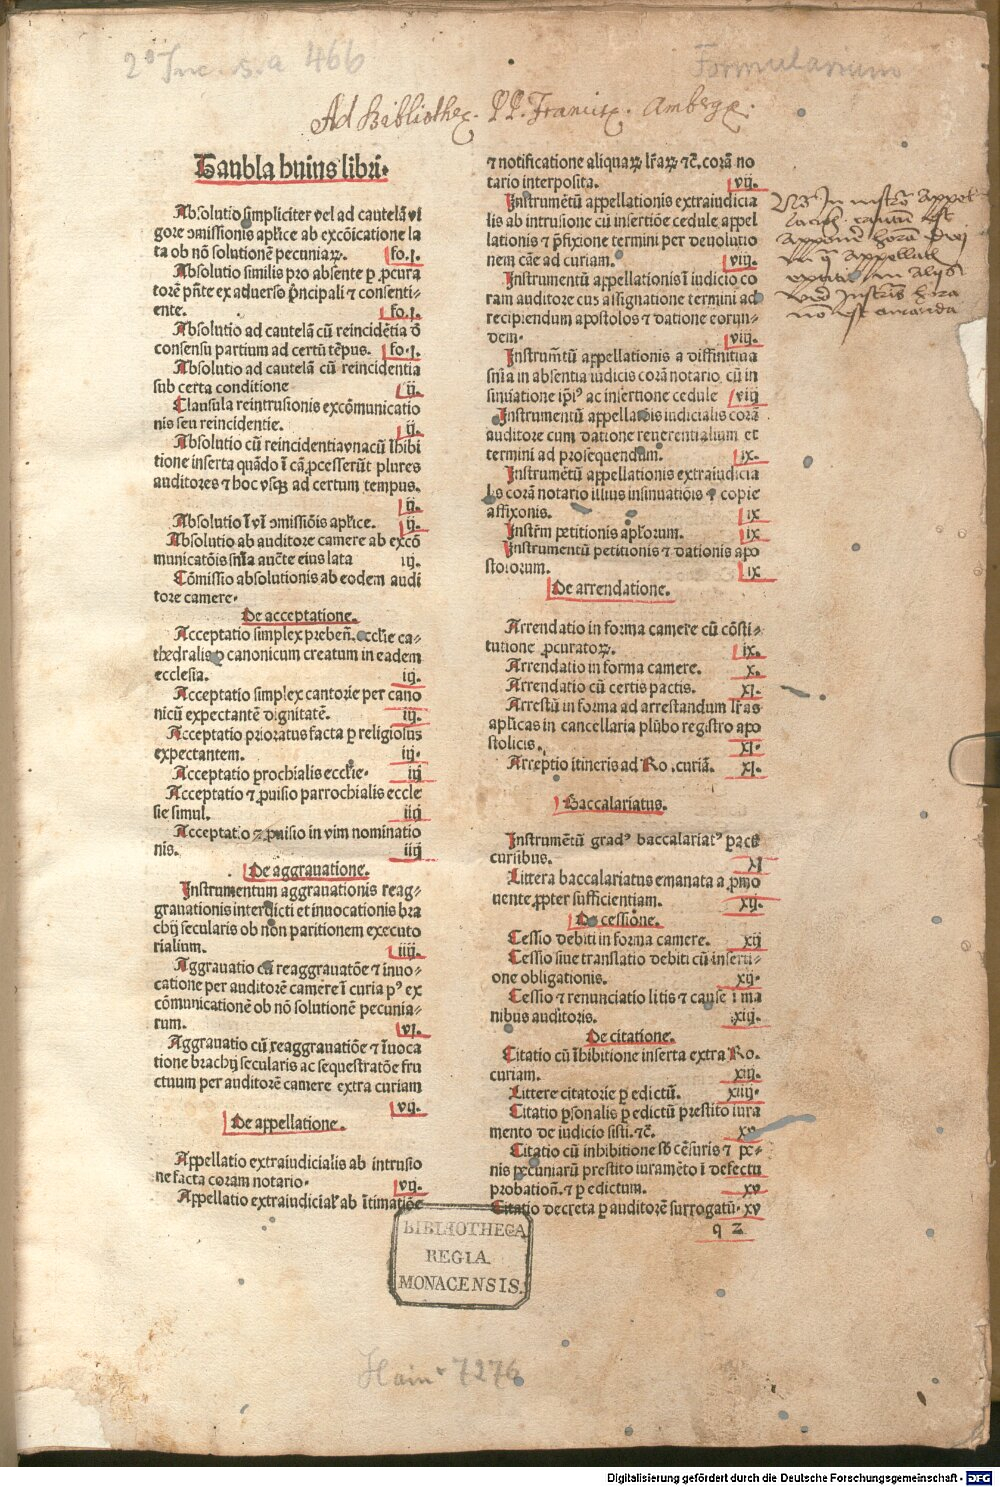 2° Inc. s.a 466
Formularium
Ad Bibliothec. PP. Francisc. Amberge.
Taubla huius libri.
Absolutio simpliciter vel ad cautelā vi
gore ɔmissionis aplice ab excōicatione la
ta ob nō solutionē pecuniaꝝ. fo.j.
Absolutio similis pro absente ꝑ ꝓcura
torē pn̄te ex aduerso p̄ncipali ⁊ consenti-
ente. fo.j.
Absolutio ad cautelā cū reincidētia d̄
consensu partium ad certū tēpus. fo.j.
Absolutio ad cautelā cū reincidentia
sub certa conditione ij.
Clausula reintrusionis excōmunicatio
nis seu reincidentie. ij.
Absolutio cū reincidentia vnacū īhibi
tione inserta quādo ī cā ꝓcesserūt plures
auditores ⁊ hoc vsqꝫ ad certum tempus.
ij.
Absolutio ī vī ɔmissiōis aplice. ij.
Absolutio ab auditore camere ab excō
municatōis sn̄ia aucte eius lata iij.
Cōmissio absolutionis ab eodem audi
tore camere.
De acceptatione.
Acceptatio simplex prebeñ. ecclie ca-
thedralis ꝓ canonicum creatum in eadem
ecclesia. iij.
Acceptatio simplex cantorie per cano
nicū expectantē dignitatē. iij.
Acceptatio prioratus facta ꝑ religiosus
expectantem. iij.
Acceptatio prochialis ecclie. iij
Acceptatio ⁊ ꝓuisio parrochialis eccle
sie simul. iiij
Acceptatio ⁊ ꝓuisio in vim nominatio
nis. iiij
De aggrauatione.
Instrumentum aggrauationis reag-
grauationis interdicti et inuocationis bra
chij secularis ob non paritionem executo
rialium. iiij.
Aggrauatio cū reaggrauatōe ⁊ inuo-
catione per auditorē camere ī curia pꝰ ex
cōmunicationē ob nō solutionē pecunia-
rum. vj.
Aggrauatio cū reaggrauatiōe ⁊ īuoca
tione brachij secularis ac sequestratōe fru
ctuum per auditorē camere extra curiam
vij.
De appellatione.
Appellatio extraiudicialis ab intrusio
ne facta coram notario. vij.
Appellatio extraiudicial' ab ītimatiōe
⁊ notificatione aliquaꝝ lr̄aꝝ ⁊c̄. corā no
tario interposita. vij.
Instrumētū appellationis extraiudicia
lis ab intrusione cū insertiōe cedule appel
lationis ⁊ p̄fixione termini per deuolutio
nem cāe ad curiam. viij.
Instrumentū appellationis ī iudicio co
ram auditore cus assignatione termini ad
recipiendum apostolos ⁊ datione eorun-
dem. viij.
Instrum̄tū appellationis a diffinitiua
sn̄ia in absentia iudicis corā notario cū in
sinuatione ip̄iꝰ ac insertione cedule viij
Instrumentū appellatōis iudicialis corā
auditore cum datione reuerentialium et
termini ad prosequendum. ix.
Instrumētū appellationis extraiudicia
lis corā notario illius insinuatiōis ⁊ copie
affixonis. ix
Instrm̄ petitionis aplorum. ix
Instrumentū petitionis ⁊ dationis apo
stolorum. ix
De arrendatione.
Arrendatio in forma camere cū cōsti-
tutione ꝓcuratoꝝ. ix.
Arrendatio in forma camere. x.
Arrendatio cū certis pactis. xj.
Arrestū in forma ad arrestandum lr̄as
aplicas in cancellaria plūbo registro apo
stolicis. xj.
Acceptio itineris ad Ro. curiā. xj.
Baccalariatus.
Instrumētū gradꝰ baccalariatꝰ ꝑ acce
cursibus. xj
Littera baccalariatus emanata a ꝓmo
uente ꝓpter sufficientiam. xij.
De cessione.
Cessio debiti in forma camere. xij
Cessio siue translatio debiti cū inserti-
one obligationis. xij.
Cessio ⁊ renunciatio litis ⁊ cause ī ma
nibus auditoris. xiij.
De citatione.
Citatio cū īhibitione inserta extra Ro.
curiam. xiij.
Littere citatorie ꝑ edictū. xiiij.
Citatio ꝑsonalis ꝑ edictū prestito iura
mento de iudicio sisti. ⁊c̄. xv
Citatio cū inhibitione sb̄ cēsuris ⁊ pe-
nis pecuniarū prestito iuramēto ī defectu
probatioñ. ⁊ ꝑ edictum. xv
Citatio decreta ꝑ auditorē surrogatū. xv
q 2
BIBLIOTHECA
REGIA
MONACENSIS.
Hain 7276
Digitalisierung gefördert durch die Deutsche Forschungsgemeinschaft - DFG